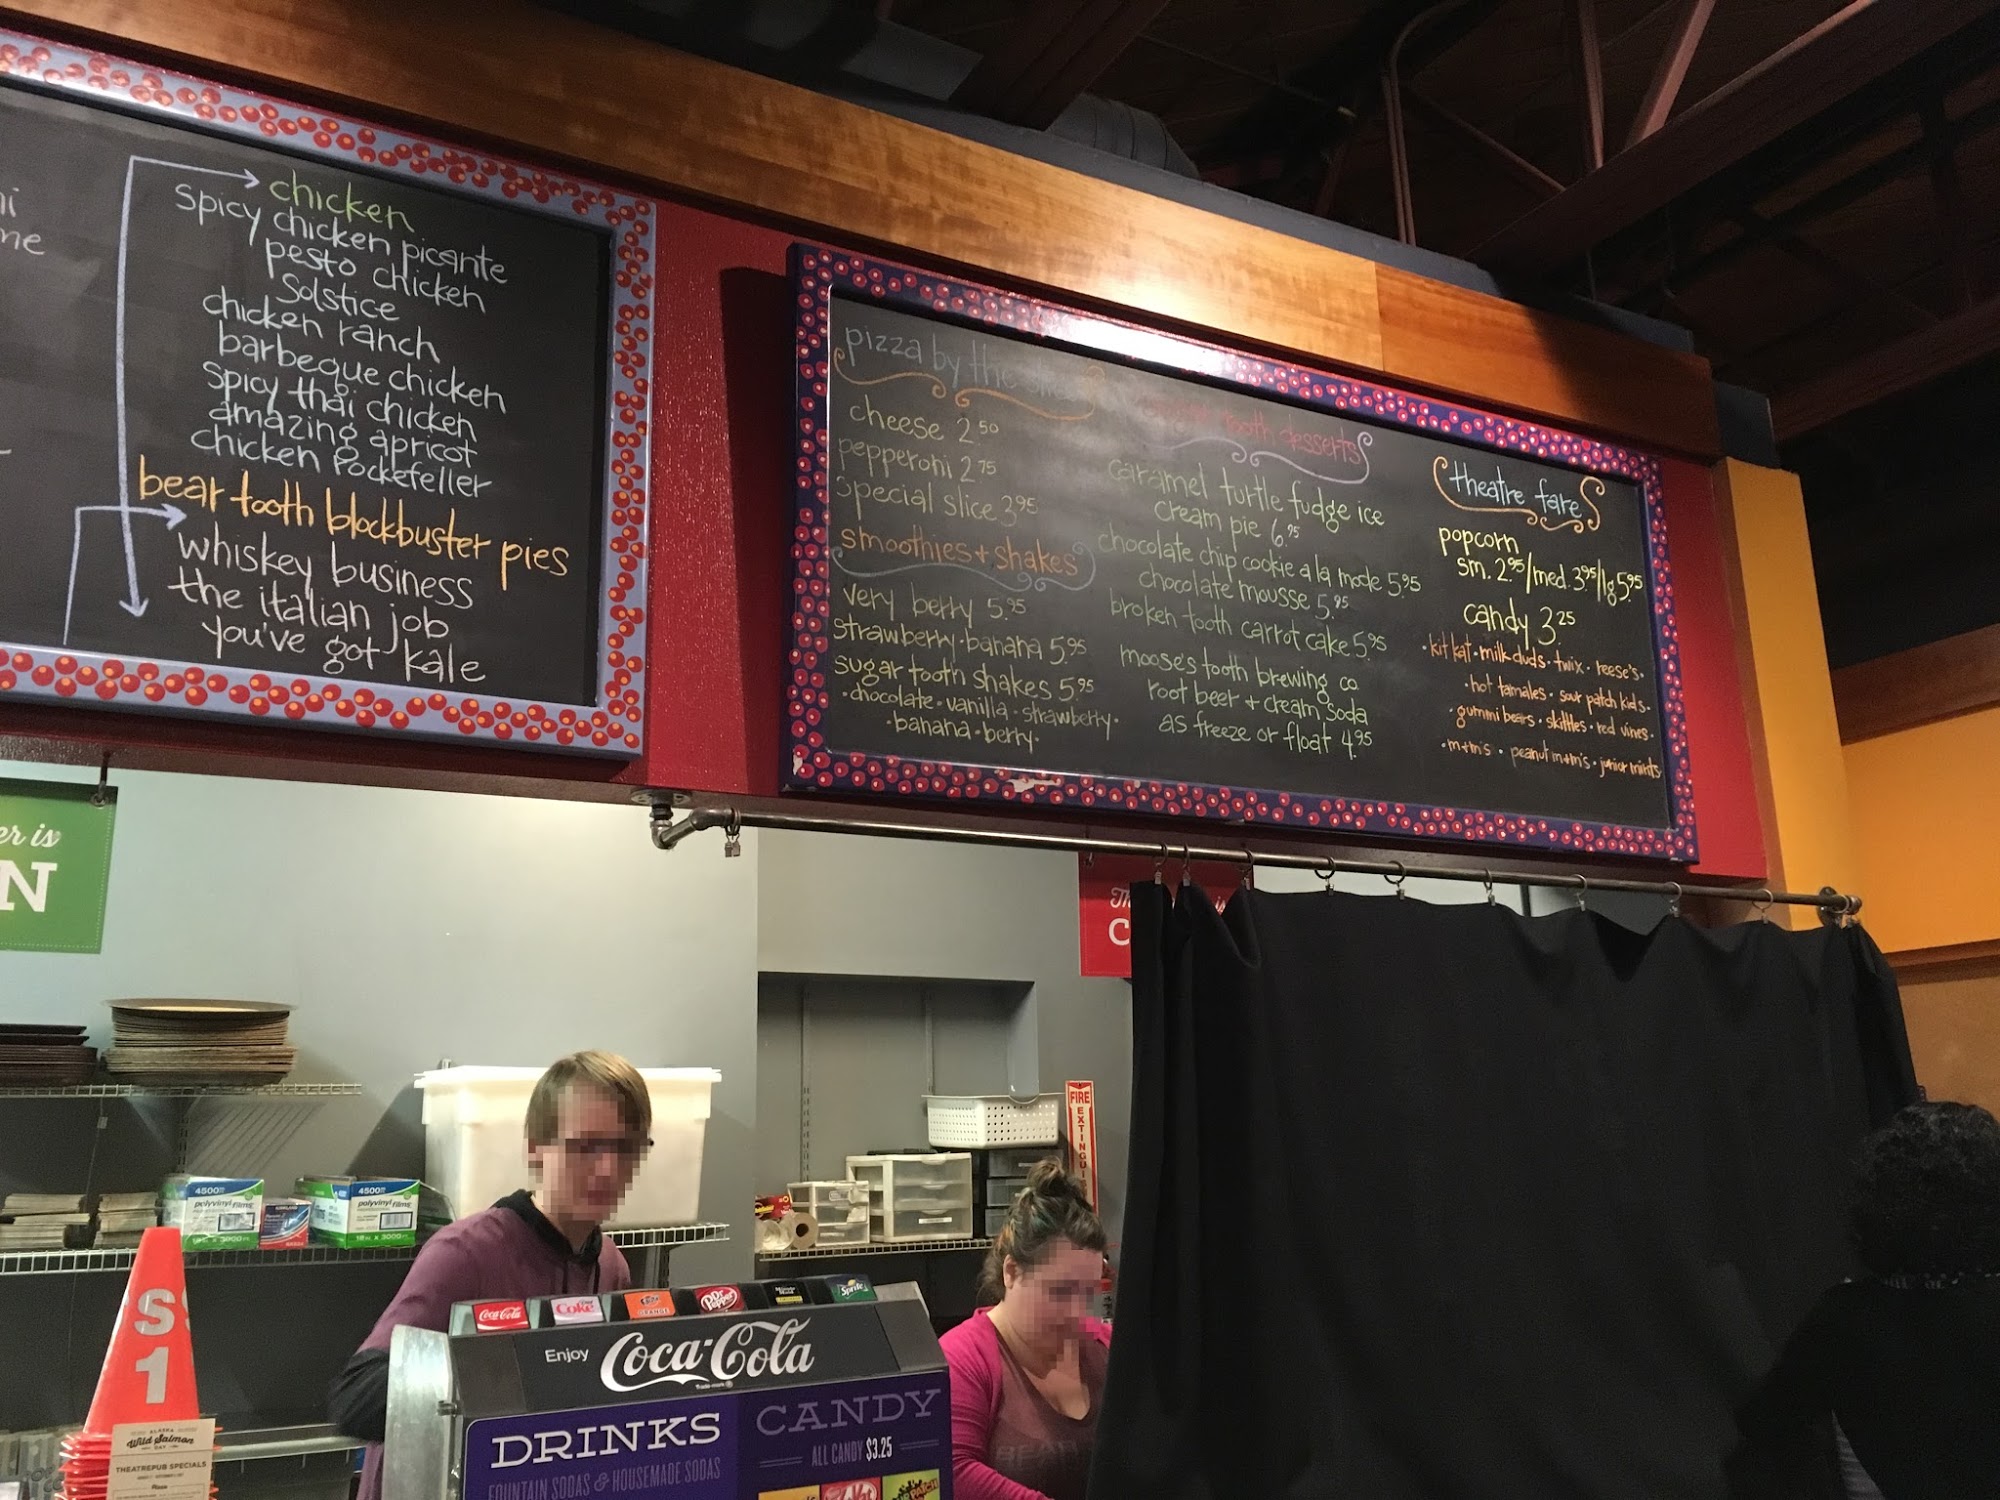 chicken
spicy chicken picante
pesto chicken
solstice
chicken ranch
barbeque chicken
spicy thai chicken
amazing apricot
chicken Rockefeller
bear tooth blockbuster pies
whiskey business
the italian job
you've got kale
pizza by the
cheese 2.50
pepperoni 2.75
special slice 3.95
smoothies + shakes
very berry 5.95
strawberry·banana 5.95
sugar tooth shakes 5.95
·chocolate·vanilla·strawberry·
·banana·berry·
tooth desserts
caramel turtle fudge ice
cream pie 6.95
chocolate chip cookie a la mode 5.95
chocolate mousse 5.95
broken tooth carrot cake 5.95
moose's tooth brewing co.
root beer + cream soda
as freeze or float 4.95
theatre fare
popcorn
sm. 2.95/med. 3.95/lg 5.95
candy 3.25
·kit kat·milk duds·twix·reese's·
·hot tamales·sour patch kids·
·gummi bears·skittles·red vines·
·m+m's·peanut m+m's·junior mints
er is
N
C
FIRE
EXTINGUI
4500
polyvinyl films
18 IN. X 3000 FT.
4500
polyvinyl films
18 IN. X 3000 FT.
S
1
ALASKA
Wild Salmon
DAY
THEATREPUB SPECIALS
Coca-Cola
Diet Coke
ORANGE
Dr Pepper
Sprite
Enjoy Coca-Cola
Trade-mark ®
DRINKS
FOUNTAIN SODAS & HOUSEMADE SODAS
CANDY
ALL CANDY $3.25
KitKat
PATCH
BEAR